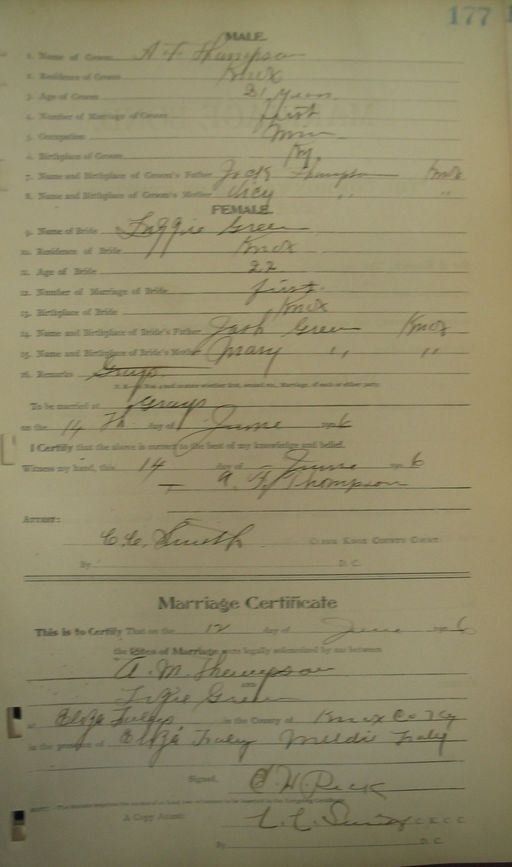 177
MALE
1. Name of Groom A. F. Thompson
2. Residence of Groom Knox
3. Age of Groom 21 years
4. Number of Marriage of Groom first
5. Occupation
6. Birthplace of Groom Ky.
7. Name and Birthplace of Groom's Father Jack Thompson Knox
8. Name and Birthplace of Groom's Mother " "
FEMALE
9. Name of Bride Green
10. Residence of Bride Knox
11. Age of Bride 22
12. Number of Marriage of Bride first.
13. Birthplace of Bride Knox
14. Name and Birthplace of Bride's Father Green Knox
15. Name and Birthplace of Bride's Mother Mary " "
16. Remarks Grays
To be married at Grays
on the 14 Th day of June 190 6
I Certify that the above is correct to the best of my knowledge and belief.
Witness my hand, this 14 day of June 190 6
A. F. Thompson
ATTEST:
C. C. Smith CLERK KNOX COUNTY COURT
By D. C.
Marriage Certificate
This is to Certify That on the 12 day of June 190 6
the Rites of Marriage were legally solemnized by me between
A. M. Thompson
AND
Green
at in the County of Knox Co Ky
in the presence of
Signed, Peck
A Copy Attest: C. K. C. C.
By D. C.